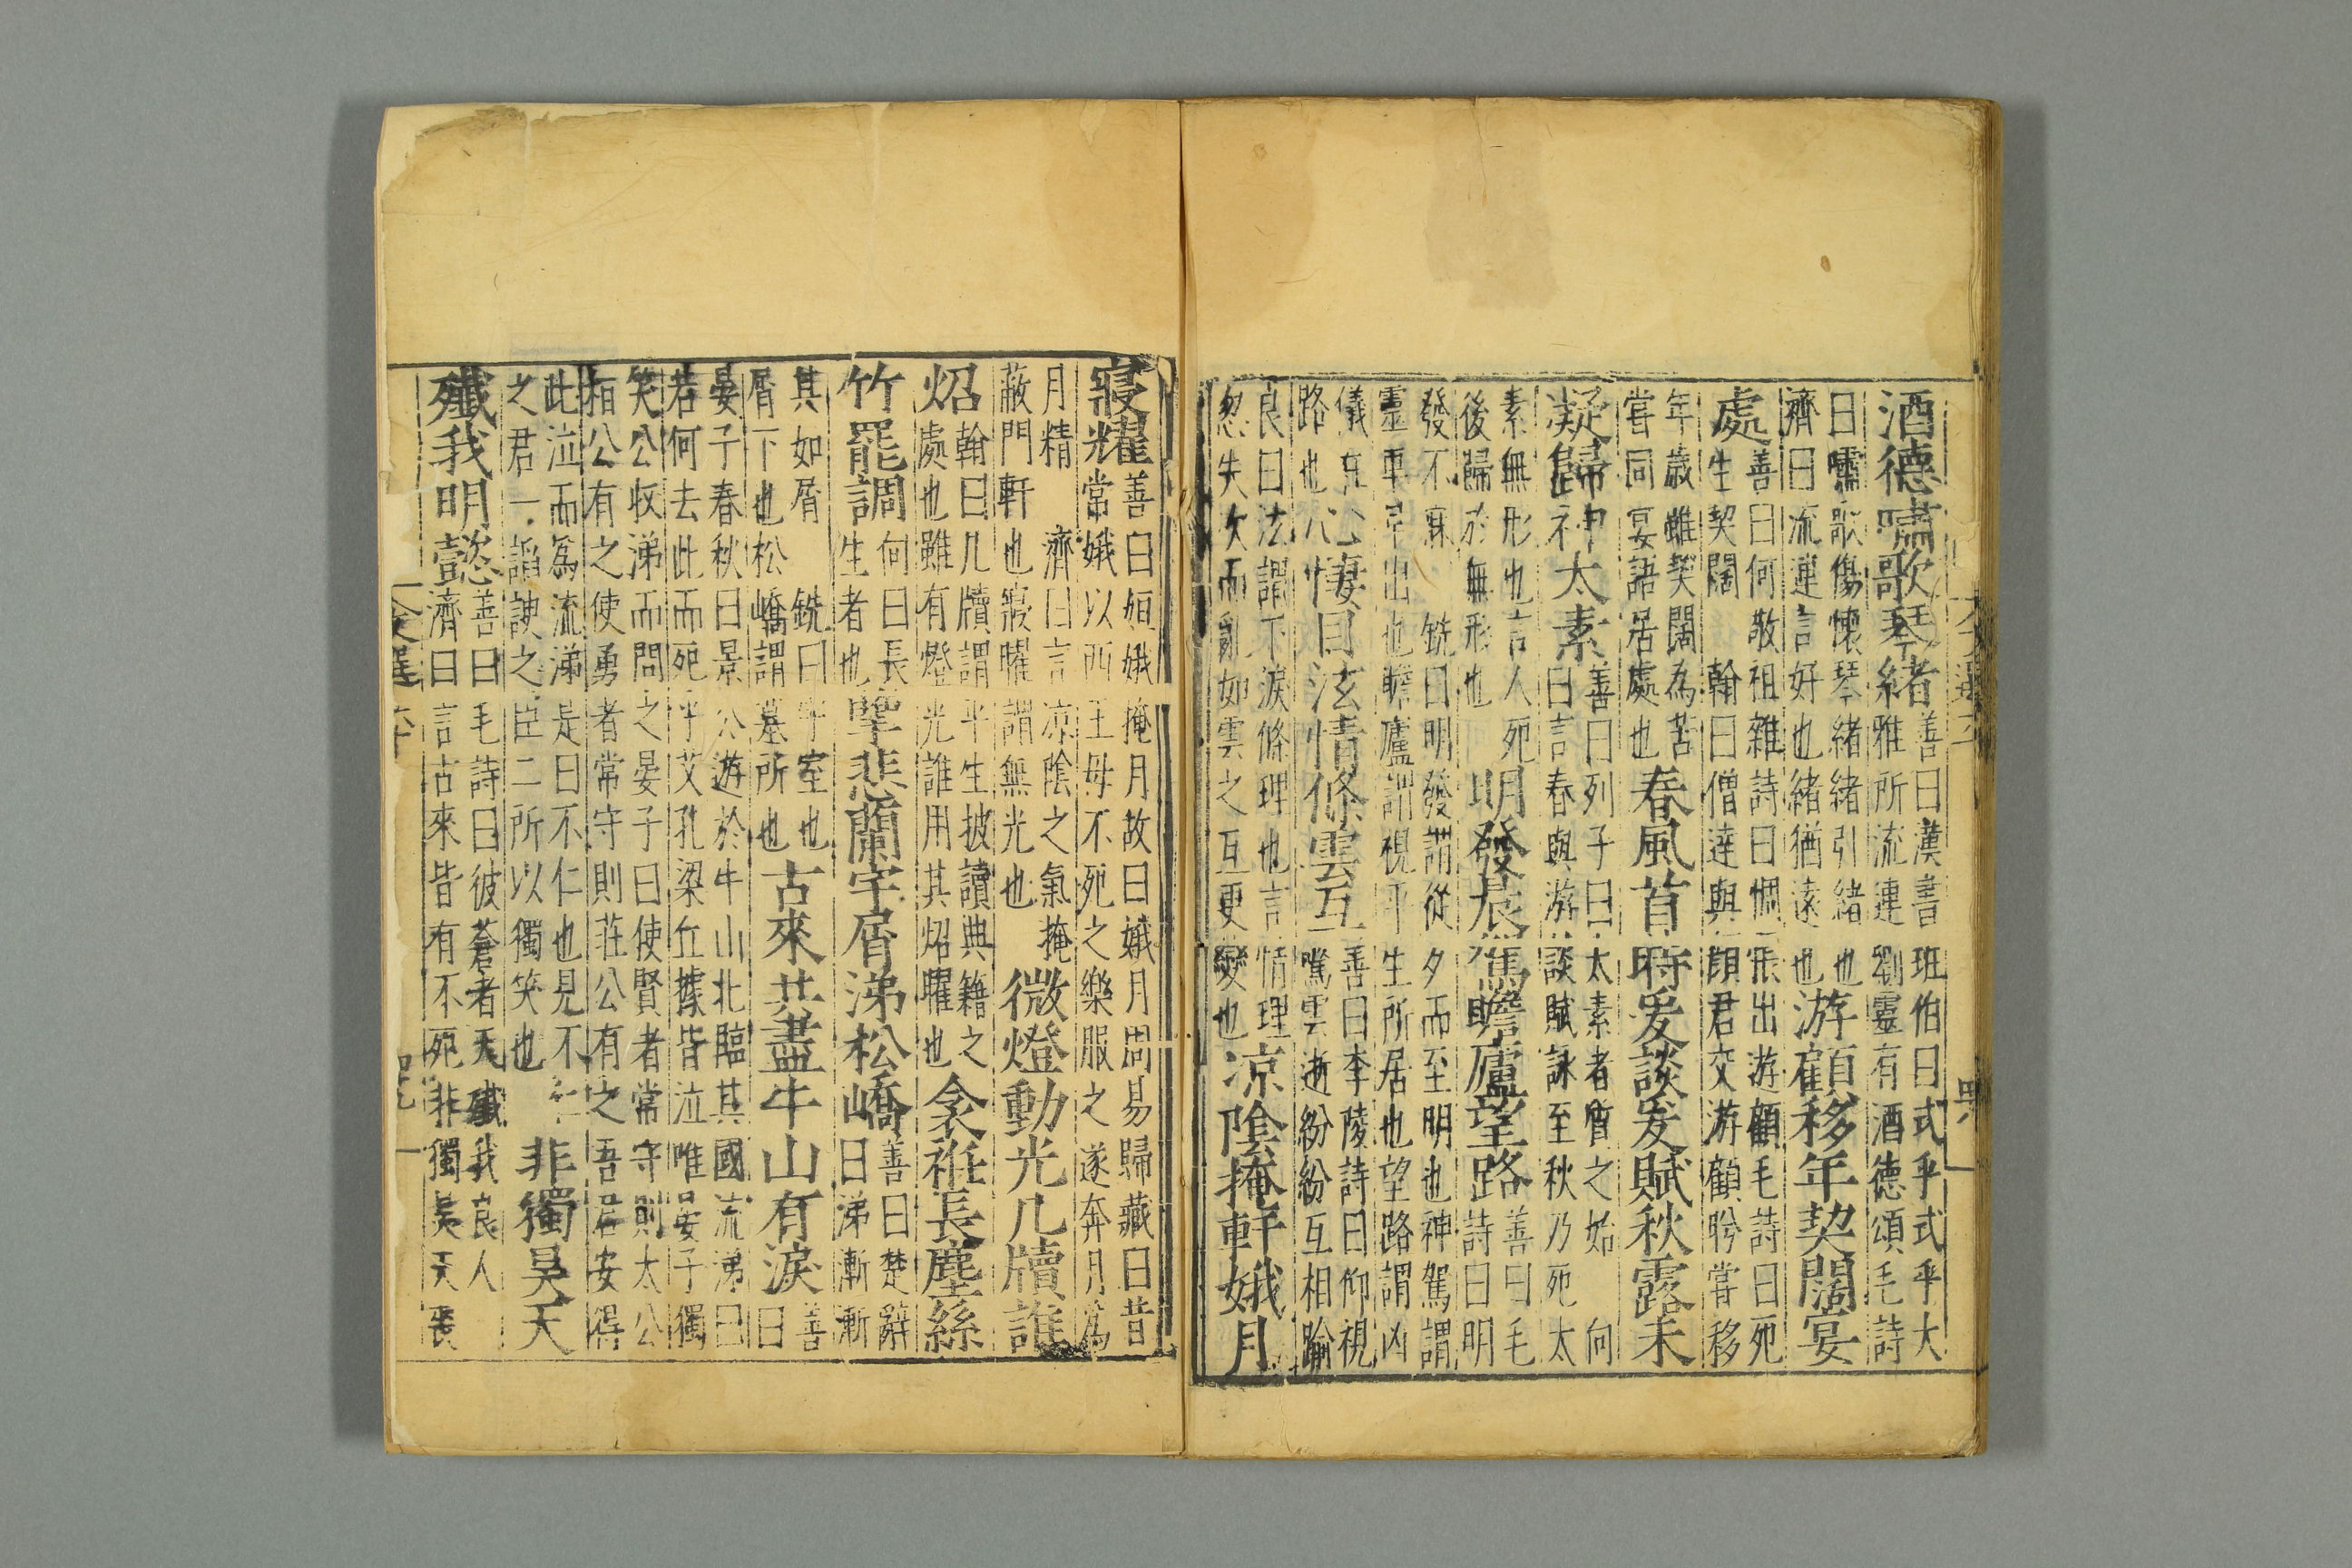 酒德嘯歌琴緒善曰漢書班伯曰式乎式乎大雅所流連劉靈有酒德頌毛詩
曰嘯歌傷懷琴緒緒引緒也濟曰流連言好也緒猶遠也游顧移年契闊宴
處善曰何敬祖雜詩曰惆悵出游顧毛詩曰死生契闊翰曰僧達與顏君交游顧眄嘗移
年歲雖契闊為苦嘗同宴語居處也春風首時爰談爰賦秋露未
凝歸神太素善曰列子曰太素者質之始向曰言春與游談賦詠至秋乃死太
素無形也言人死後歸於無形也明發晨駕瞻廬望路善曰毛詩曰明
發不寐銑曰明發謂從夕而至明也神駕謂靈車早出也瞻廬謂視平生所居也望路謂凶
儀在路也心悽目泫情條雲互善曰李陵詩曰仰視嘆雲逝紛紛互相踰
良曰泫謂下淚條理也言情理忽失次而亂如雲之互更變也涼陰掩軒娥月
寢耀善曰姮娥掩月故曰娥月周易歸藏曰昔常娥以西王母不死之藥服之遂奔月為
月精濟曰言涼陰之氣掩蔽門軒也寢曜謂無光也微燈動光几牘誰
炤翰曰几牘謂平生披讀典籍之處也雖有燈光誰用其炤曜也衾衽長塵絲
竹罷調何曰長生者也擥悲蘭宇屑涕松嶠善曰楚辭曰涕漸漸
其如屑銑曰宇室也屑下也松嶠謂墓所也古來共盡牛山有淚善曰
晏子春秋曰景公遊於牛山北臨其國流涕曰若何去此而死乎艾孔梁丘據皆泣唯晏子獨
笑公收涕而問之晏子曰使賢者常守則太公桓公有之使勇者常守則莊公有之吾君安得
此泣而為流涕是曰不仁也見不仁之君一諂諛之臣二所以獨笑也非獨昊天
殲我明懿善曰毛詩曰彼蒼者天殲我良人濟曰言古來皆有不死非獨昊天喪
文選六十